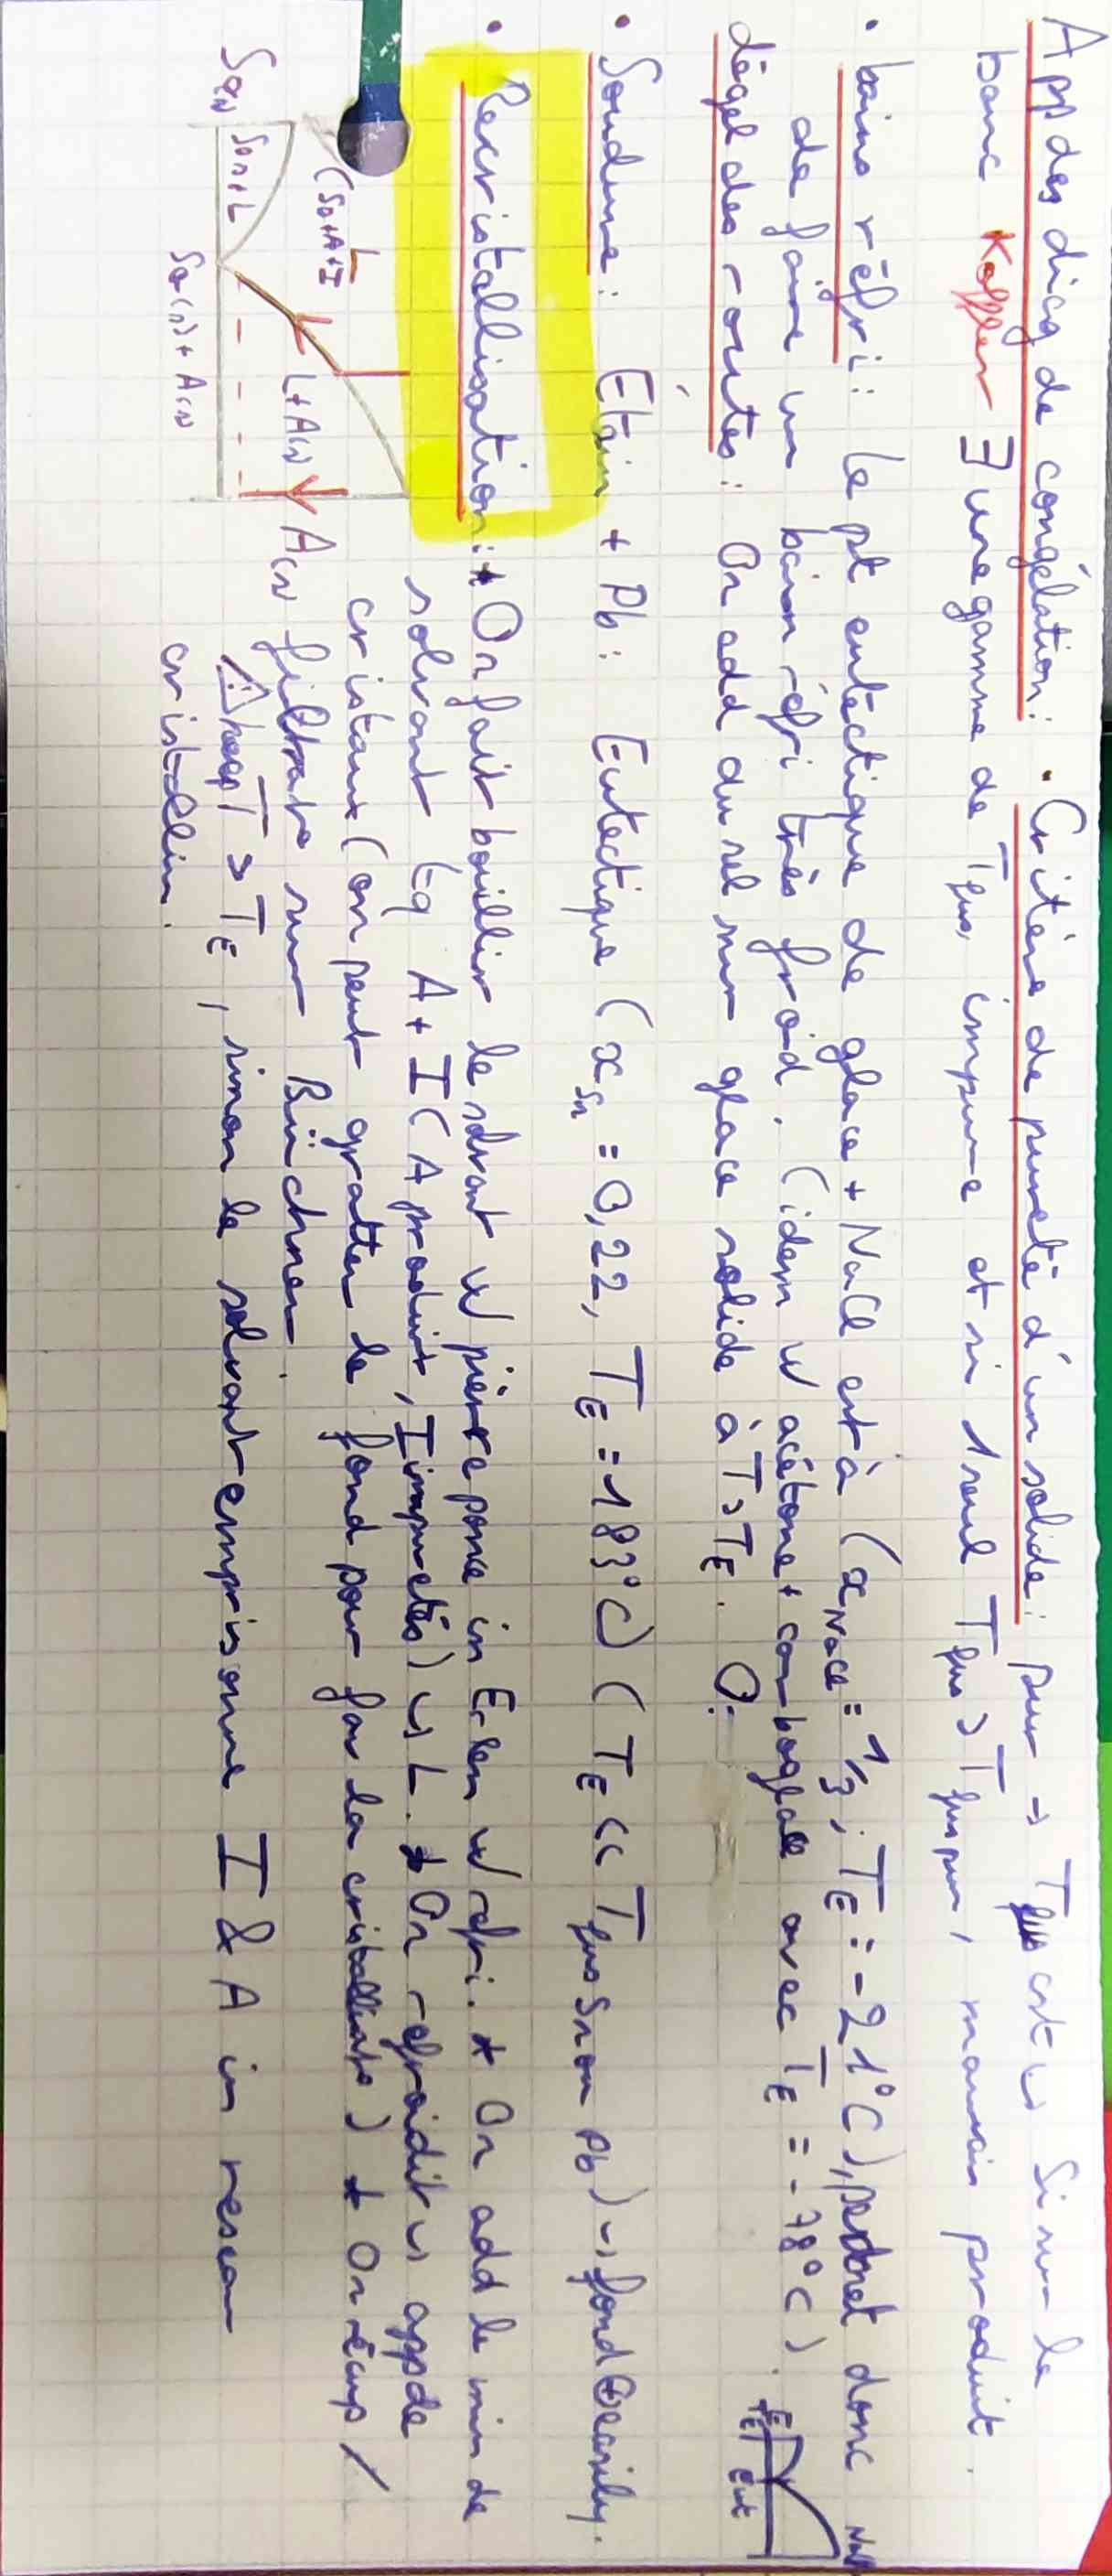 App des diag de congélation: • Critère de pureté d'un solide: pur → Tfus cst ↳ Si sur le
banc Koffler ∃ une gamme de Tfus, impure et si 1 seul Tfus > Tfus pur, mauvais produit.
• bains réfri: le pt eutectique de glace + NaCl est à (xNaCl = 1/3; TE = -21°C), permet donc
de faire un bain réfri très froid. (idem w acétone + carboglace avec TE = -78°C).
dégel des routes: On add du sel sur glace solide à T > TE.
TE Eut NaCl
• Soudure: Étain + Pb: Eutectique (xSn = 0,22, TE = 183°C) (TE << Tfus Sn ou Pb) → fond ⊕ easily.
• Recristallisation: * On fait bouillir le solvant w pierre ponce in Erlen w réfri. * On add le min de
solvant tq A + I (A produit, I impuretés) ↳ L. * On refroidit ↳ app de
cristaux (on peut gratter le fond pour fav la cristallisato) * On récup /
filtrato sur Büchner.
⚠ keep T > TE, sinon le solvant emprisonne I & A in reseau
cristallin.
L
(So+A+I
So(s)+L
L+A(s)
A(s)
So(s)
So(s)+A(s)